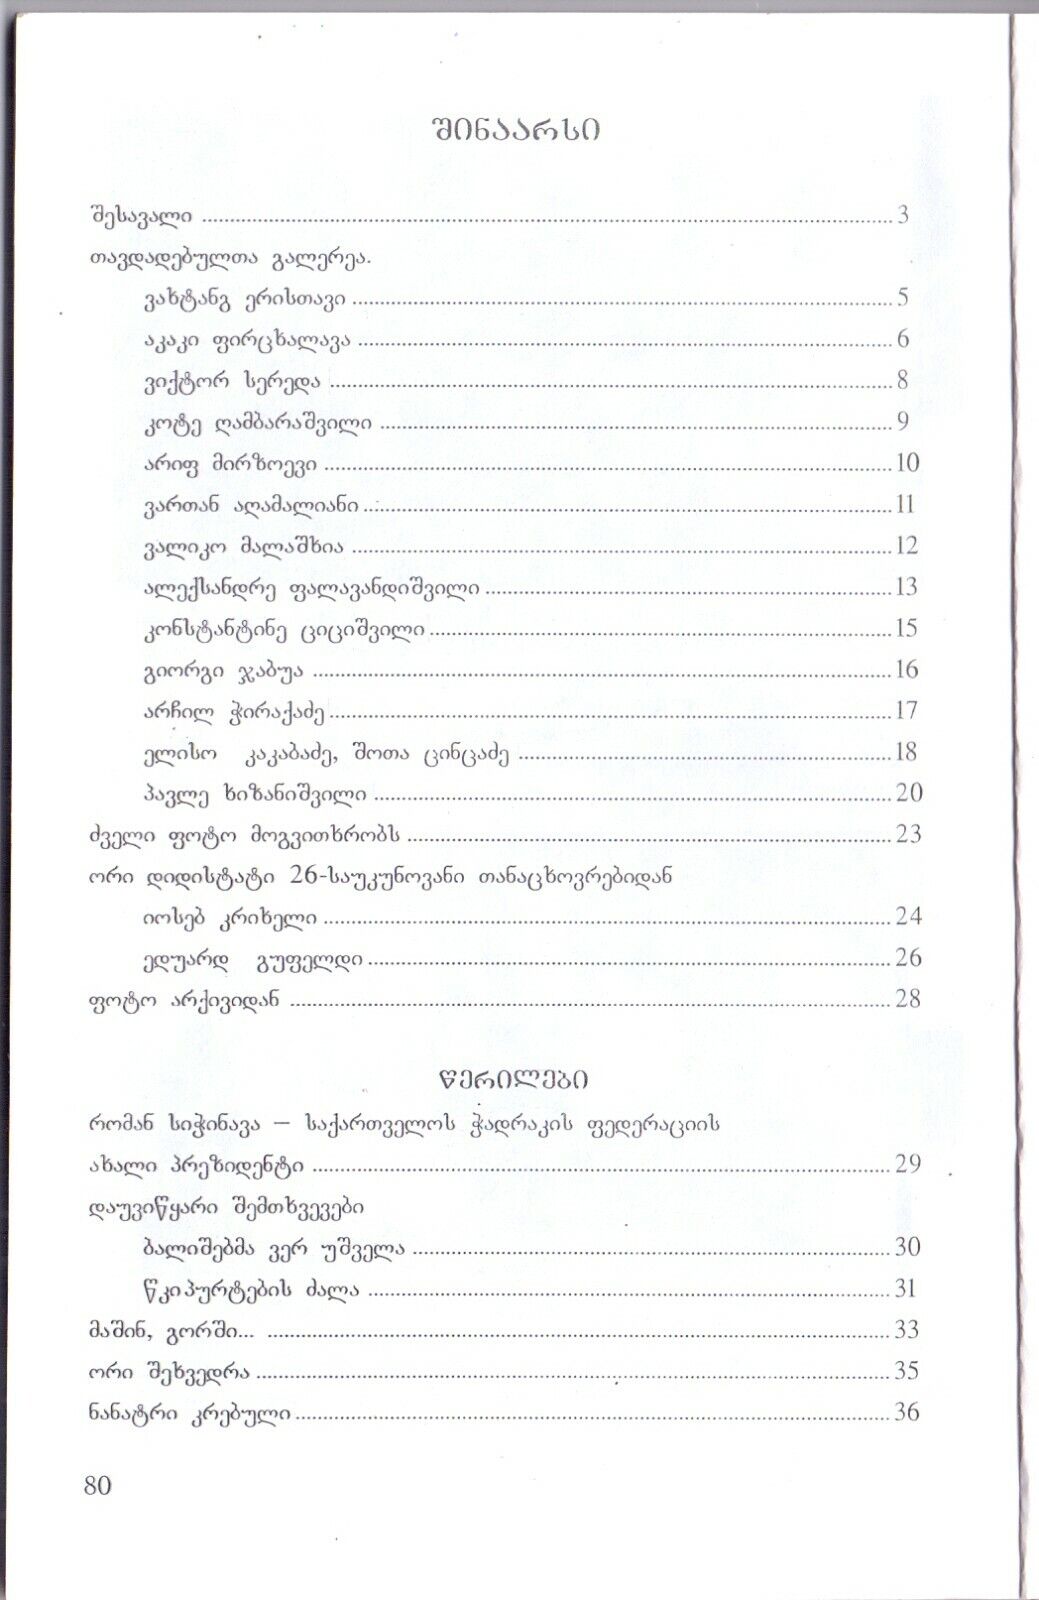 შინაარსი
შესავალი 3
თავდადებულთა გალერეა.
ვახტანგ ერისთავი 5
აკაკი ფირცხალავა 6
ვიქტორ სერედა 8
კოტე ღამბარაშვილი 9
არიფ მირზოევი 10
ვართან აღამალიანი 11
ვალიკო მალაშხია 12
ალექსანდრე ფალავანდიშვილი 13
კონსტანტინე ციციშვილი 15
გიორგი ჯაბუა 16
არჩილ ჭირაქაძე 17
ელისო კაკაბაძე, შოთა ცინცაძე 18
პავლე ხიზანიშვილი 20
ძველი ფოტო მოგვითხრობს 23
ორი დიდისტატი 26-საუკუნოვანი თანაცხოვრებიდან
იოსებ კრიხელი 24
ედუარდ გუფელდი 26
ფოტო არქივიდან 28
წერილები
რომან სიჭინავა – საქართველოს ჭადრაკის ფედერაციის
ახალი პრეზიდენტი 29
დაუვიწყარი შემთხვევები
ბალიშებმა ვერ უშველა 30
წკიპურტების ძალა 31
მაშინ, გორში... 33
ორი შეხვედრა 35
ნანატრი კრებული 36
80